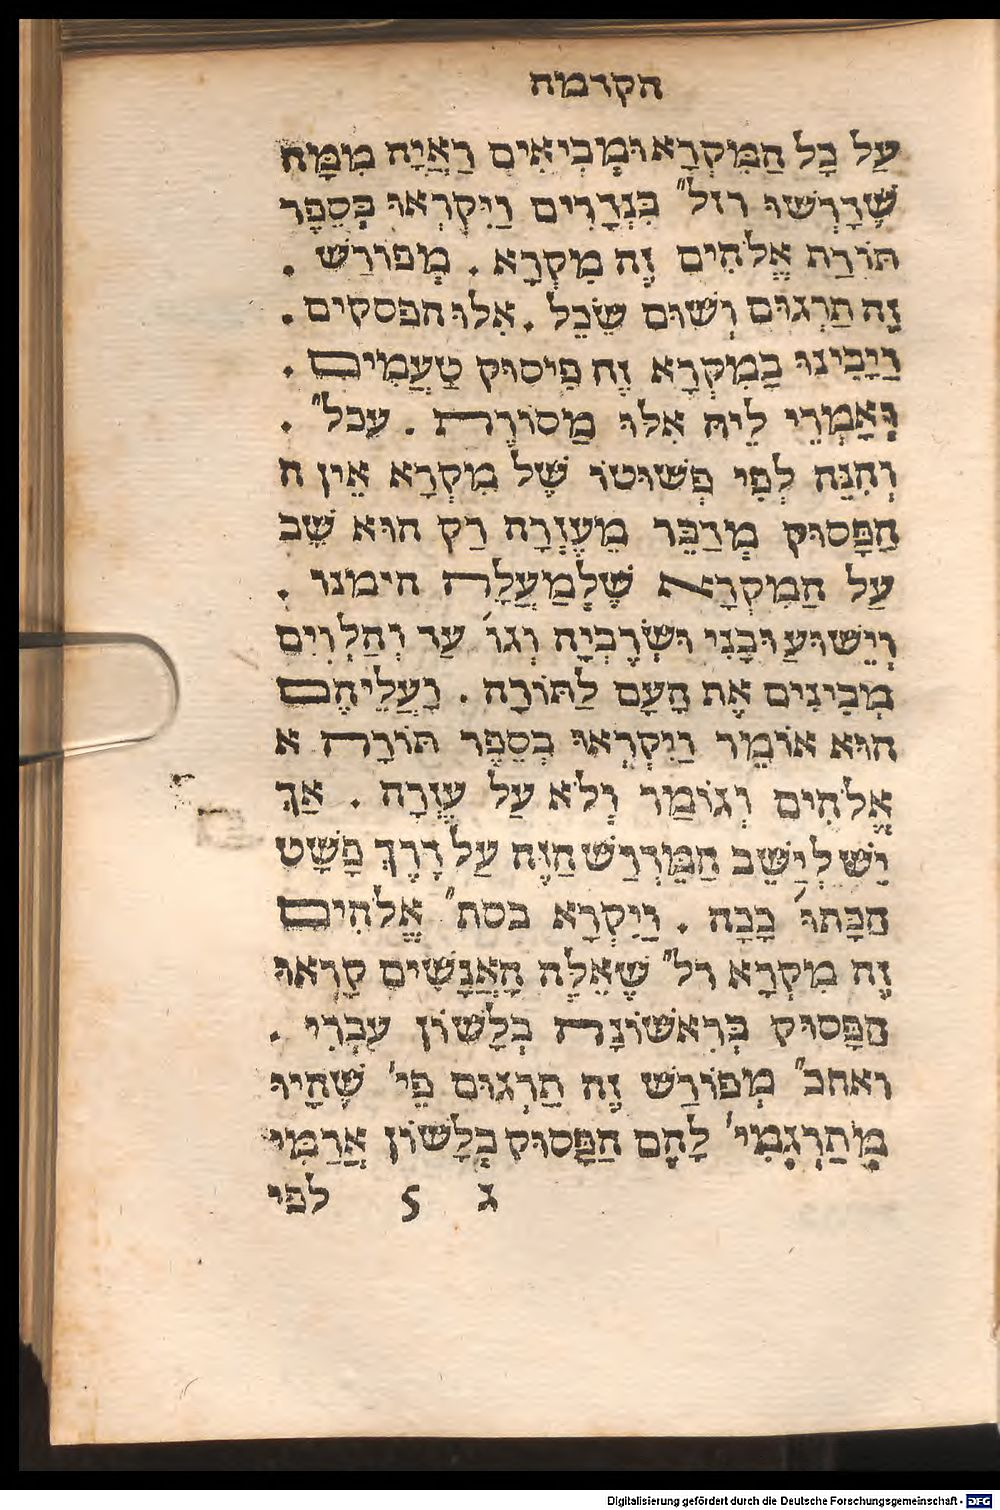 הקדמה
עַל כָּל הַמִּקְרָא וּמְבִיאִים רְאָיָה מִמַּה
שֶּׁדָּרְשׁוּ רז״ל בִּנְדָרִים וַיִּקְרְאוּ בְּסֵפֶר
תּוֹרַת אֱלֹהִים זֶה מִקְרָא . מְפוֹרָשׁ .
זֶה תַרְגּוּם וְשׂוּם שֵׂכֶל . אֵלּוּ הפסקים .
וַיָּבִינוּ בַּמִּקְרָא זֶה פִּיסּוּק טְעָמִים .
וְאָמְרֵי לֵיהּ אֵלּוּ מַסּוֹרֶת . עכ״ל .
וְהִנֵּה לְפִי פְּשׁוּטוֹ שֶׁל מִקְרָא אֵין ה
הַפָּסוּק מְדַבֵּר מֵעֶזְרָה רַק הוּא שָׁב
עַל הַמִּקְרָא שֶׁלְּמַעֲלָה הימנו .
וְיֵשׁוּעַ וּבָנִי וּשְׁרֵבְיָה וְגו׳ עד וְהַלְוִיִּם
מְבִינִים אֶת הָעָם לַתּוֹרָה . וַעֲלֵיהֶם
הוּא אוֹמֵר וַיִּקְרְאוּ בְסֵפֶר תּוֹרַת א
אֱלֹהִים וְגוֹמַר וְלֹא עַל עֶזְרָה . אַךְ
יֵשׁ לְיַשֵּׁב הַמִּדְרָשׁ הַזֶּה עַל דֶּרֶךְ פְּשָׁט
הַכָּתוּ׳ כָּכָה . וַיִּקְרָא בסת״ אֱלֹהִים
זֶה מִקְרָא ר״ל שֶׁאֵלֶּה הָאֲנָשִׁים קָרְאוּ
הַפָּסוּק בְּרִאשׁוֹנָה בְּלָשׁוֹן עִבְרִי .
ואחכ״ מְפוֹרָשׁ זֶה תַרְגּוּם פֵּי׳ שֶׁהָיוּ
מְתַרְגְּמִי׳ לָהֶם הַפָּסוּק בְּלָשׁוֹן אֲרַמִּי
ג 5 לפי
Digitalisierung gefördert durch die Deutsche Forschungsgemeinschaft - DFG